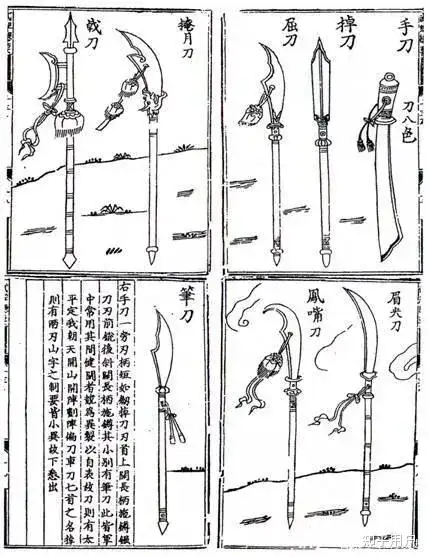 手刀
刀八色
掉刀
屈刀
掩月刀
戟刀
眉尖刀
鳳嘴刀
筆刀
右手刀一旁刃柄短如劍掉刀刃首上闊長柄施鐏
刀刃前銳後斜闊長柄施鐏其小別有筆刀此皆軍
中常用其間健鬬者競爲異製以自表故刀則有太
平定我朝天開山開陣劃陣偏刀車刀匕首之名掉
則有兩刃山字之制要皆小異故不悉出
知乎用户